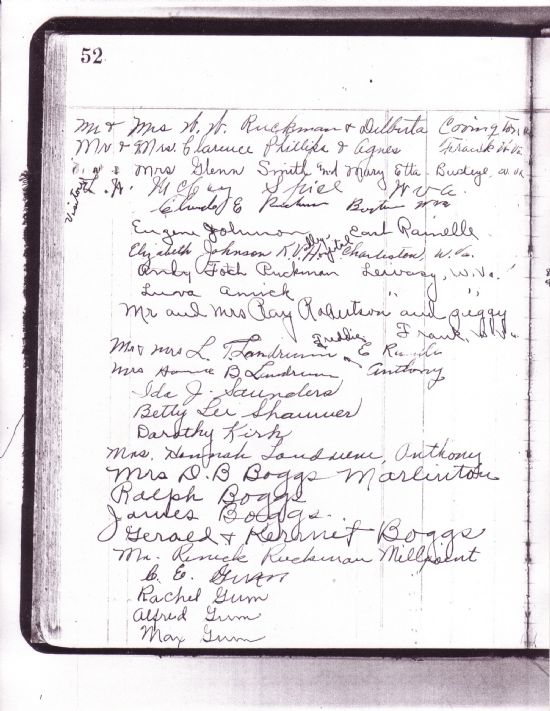 52
Mr & Mrs W. W. Ruckman & Dilberta Covington
Mr. & Mrs. Clarence Phillips & Agnes Frank W. Va.
Mrs Glenn Smith and Mary Etta - Buckeye, W. Va.
Visitors
McCoy Spice W Va.
Claude E Ruckman
Eugene Johnson East Rainelle
Elizabeth Johnson K. Valley Hospital Charleston, W. Va.
Andy Foch Ruckman Leivasy, W. Va.
Luva Amick " "
Mr and Mrs Ray Robertson and Peggy
Frank, W. Va.
Mr & Mrs L. T. Landrum Freddie E
Mrs B Landrum Anthony
Ida J. Saunders
Betty Lee Shawver
Dorothy Kirk
Mrs. Hannah Anthony
Mrs D. B Boggs Marlinton
Ralph Boggs
James Boggs.
Gerald & Kermit Boggs
Mr. Renick Ruckman Millpoint
C. E. Gum
Rachel Gum
Alfred Gum
Max Gum